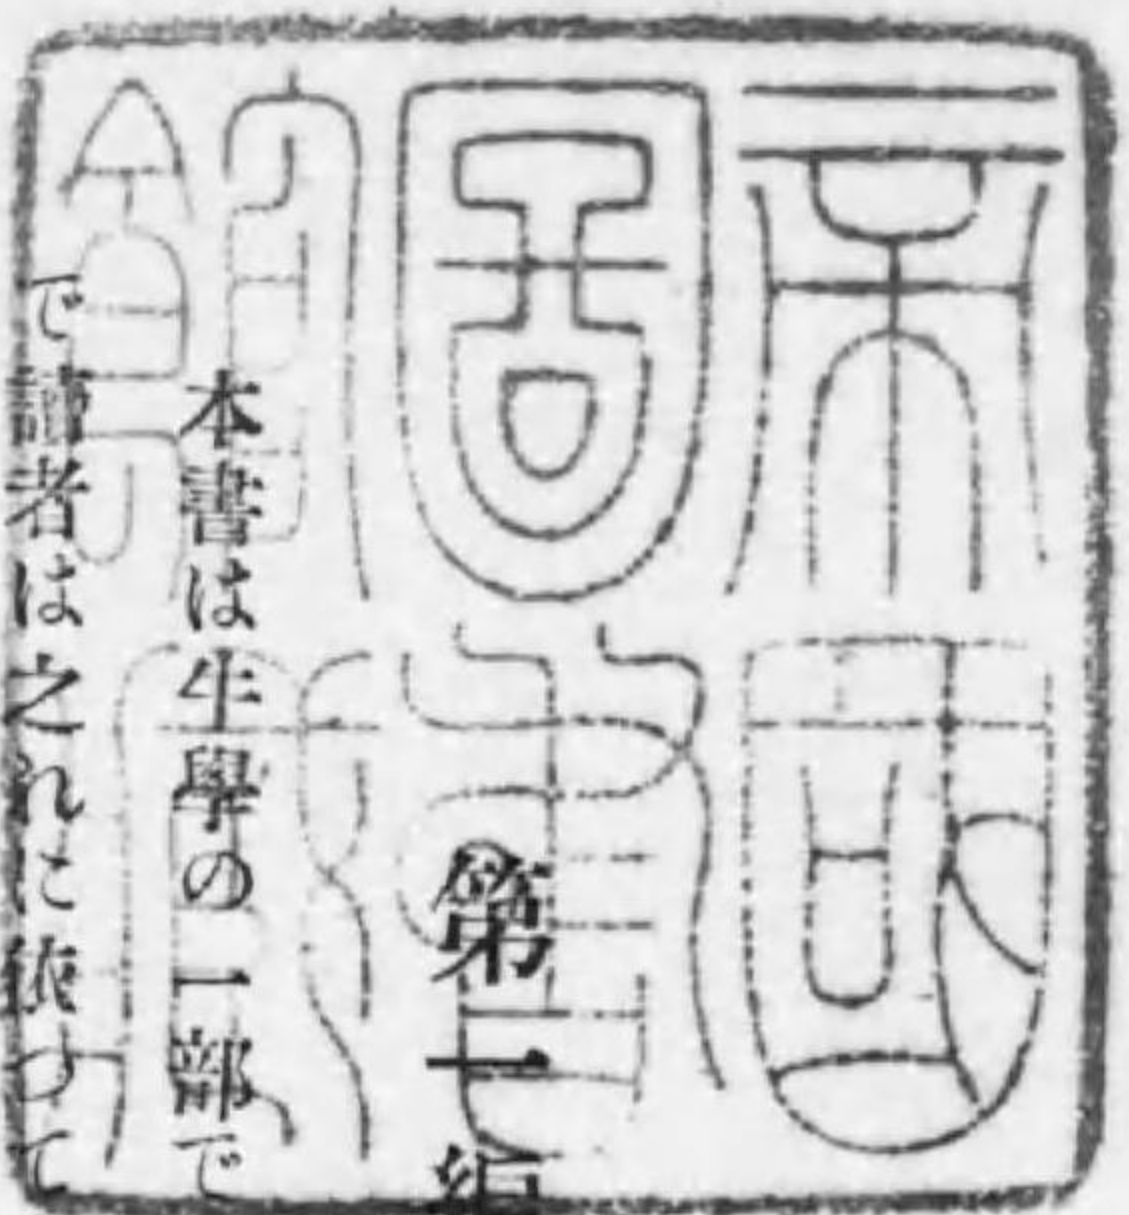 帝國
圖書
館藏
第一編
本書は生學の一部で
で讀者は之れに依つて